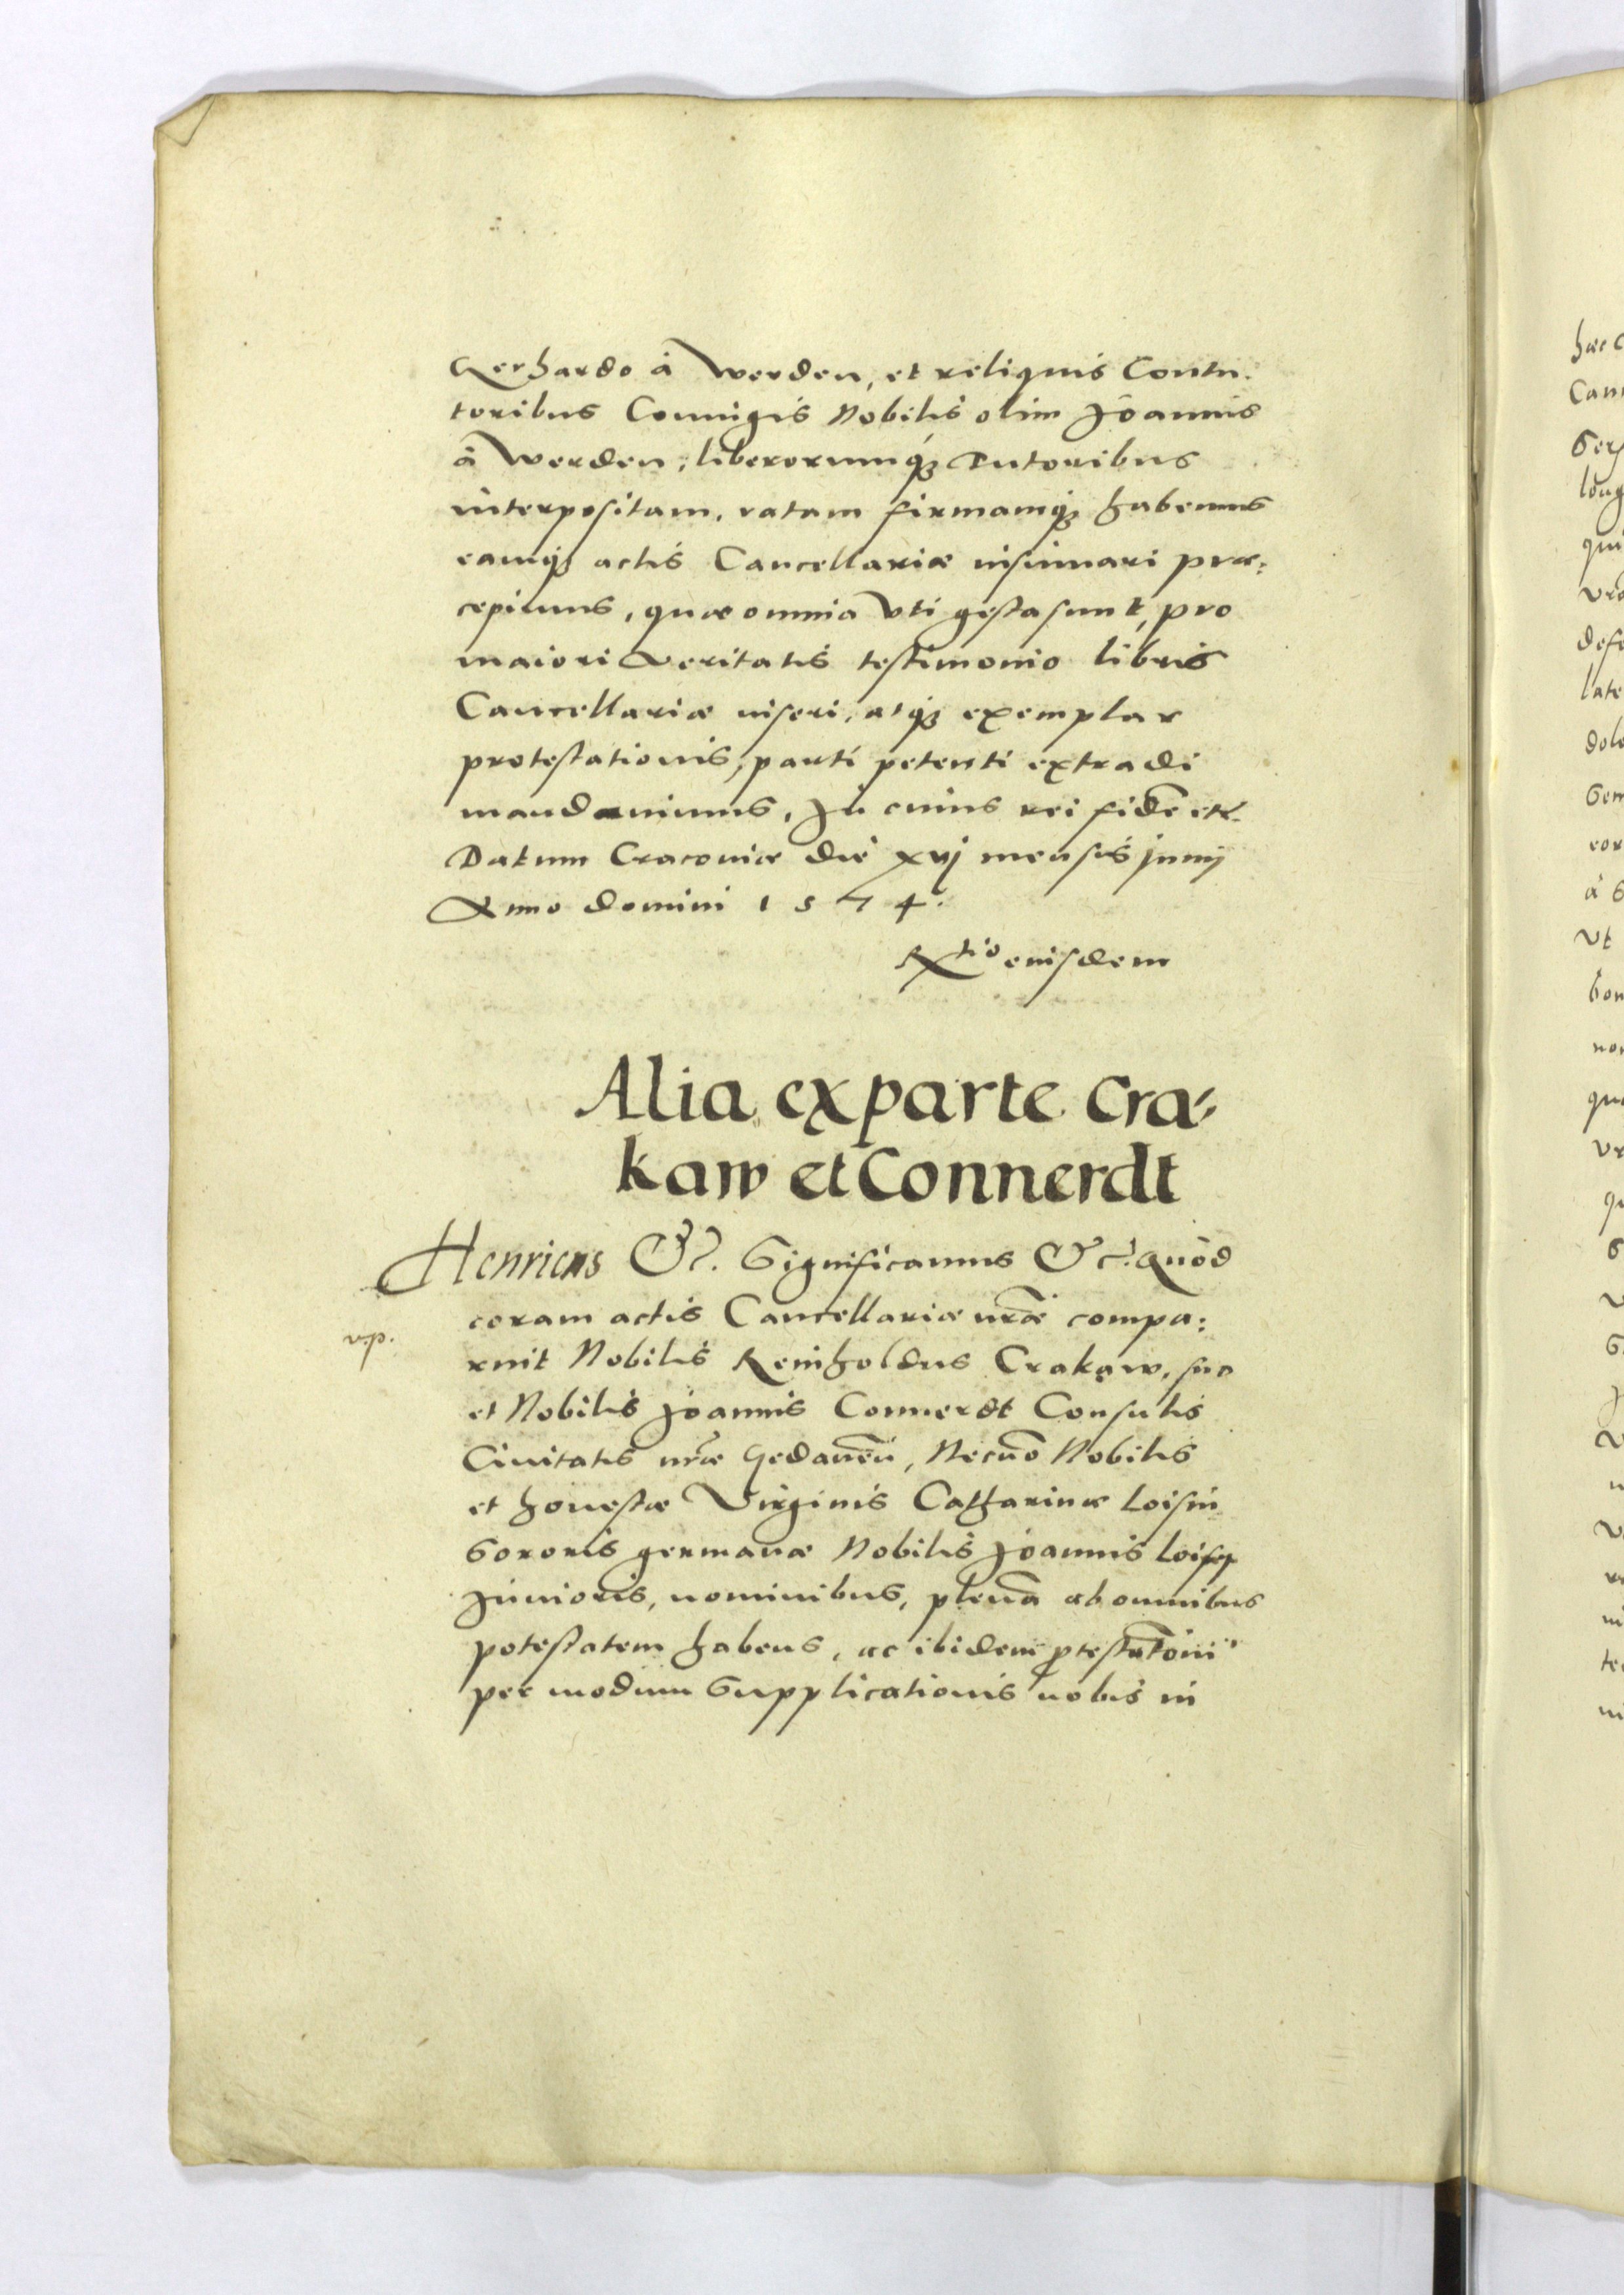 Gerhardo à Werden, et reliquis Contu-
toribus Coniugis Nobilis olim Joannis
à Werden, liberorumq́ꝫ Tutoribus
interpositam, ratam firmamq́ꝫ habemus
eamq́ꝫ actis Cancellariæ insinuari præ:
cepimus, quæ omnia vti gesta sunt, pro
maiori veritatis testimonio libris
Cancellariæ inseri, atq́ꝫ exemplar
protestationis, parti petenti extradi
mandauimus, In cuius rei fidē etc.
Datum Cracoviæ die xvj mensis junij
Anno domini 1574.
Rtio eiusdem
Alia ex parte Cra-
kaw et Connerdt
Henricus &c. Significamus &c. Quòd
coram actis Cancellariæ nr̃æ compa:
ruit Nobilis Reinholdus Crakaw, suo
et Nobilis Joannis Connerdt Consulis
Ciuitatis nr̃æ Gedanēn, Necnō Nobilis
et honestæ Virginis Catharinæ Loisin
Sororis germanæ Nobilis Joannis Loisen
Junioris, nominibus, plenā ab omnibus
potestatem habens, ac ibidem ꝓtestatōni
per modum Supplicationis nobis in